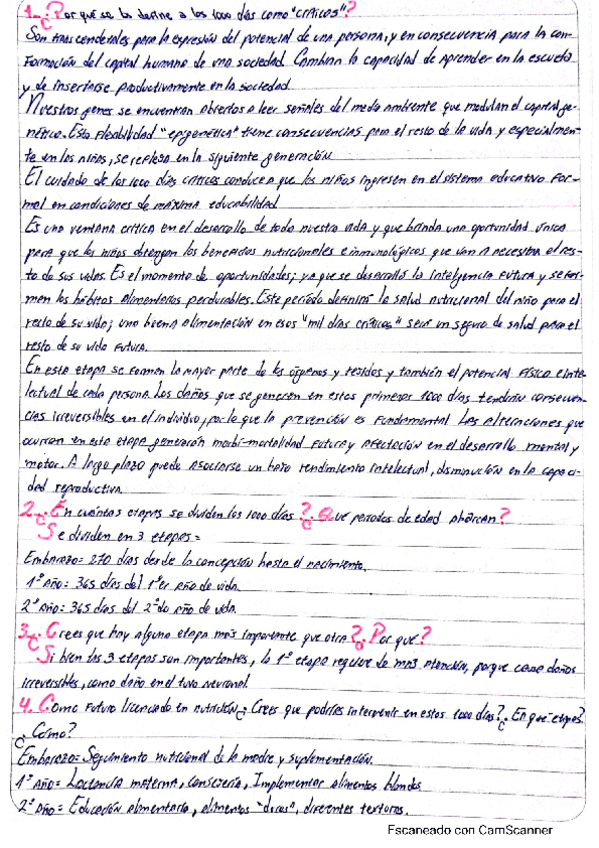 1. ¿Por qué se los define a los 1000 días como "CRÍTICOS"?
Son trascendentales para la expresión del potencial de una persona, y en consecuencia para la con-
formación del capital humano de una sociedad. Cambian la capacidad de aprender en la escuela
y de insertarse productivamente en la sociedad.
Nuestros genes se encuentran abiertos a leer señales del medio ambiente que modulan el capital ge-
nético. Esta flexibilidad "epigenética" tiene consecuencias para el resto de la vida y especialmen-
te en los niños, se refleja en la siguiente generación.
El cuidado de los 1000 días críticos conduce a que los niños ingresen en el sistema educativo for-
mal en condiciones de máxima educabilidad.
Es una ventana crítica en el desarrollo de toda nuestra vida y que brinda una oportunidad única
para que los niños obtengan los beneficios nutricionales e inmunológicos que van a necesitar el res-
to de sus vidas. Es el momento de oportunidades; ya que se desarrolla la inteligencia futura y se for-
man los hábitos alimentarios perdurables. Este período definirá la salud nutricional del niño para el
resto de su vida; una buena alimentación en esos "mil días críticos" será un seguro de salud para el
resto de su vida futura.
En esta etapa se forman la mayor parte de los órganos y tejidos y también el potencial físico e inte-
lectual de cada persona. Los daños que se generen en estos primeros 1000 días tendrán consecuen-
cias irreversibles en el individuo, por lo que la prevención es fundamental. Las alteraciones que
ocurran en esta etapa generarán morbi-mortalidad futura y afectación en el desarrollo mental y
motor. A largo plazo puede asociarse un bajo rendimiento intelectual, disminución en la capaci-
dad reproductiva.
2. ¿En cuántas etapas se dividen los 1000 días? ¿Qué periodos de edad abarcan?
Se dividen en 3 etapas=
Embarazo= 270 días desde la concepción hasta el nacimiento.
1º Año= 365 días del 1ºer año de vida.
2º Año= 365 días del 2ºdo año de vida.
3. ¿Crees que hay alguna etapa más importante que otra? ¿Por qué?
Si bien las 3 etapas son importantes, la 1º etapa requiere de más atención, porque causa daños
irreversibles, como daño en el tubo neuronal.
4. Como futuro licenciado en nutrición ¿Crees que podrías intervenir en estos 1000 días? ¿En qué etapas?
¿Cómo?
Embarazo= Seguimiento nutricional de la madre y suplementación.
1º Año= Lactancia materna, consejería, Implementar alimentos blandos
2º Año= Educación alimentaria, alimentos "duros", diferentes texturas.
Escaneado con CamScanner